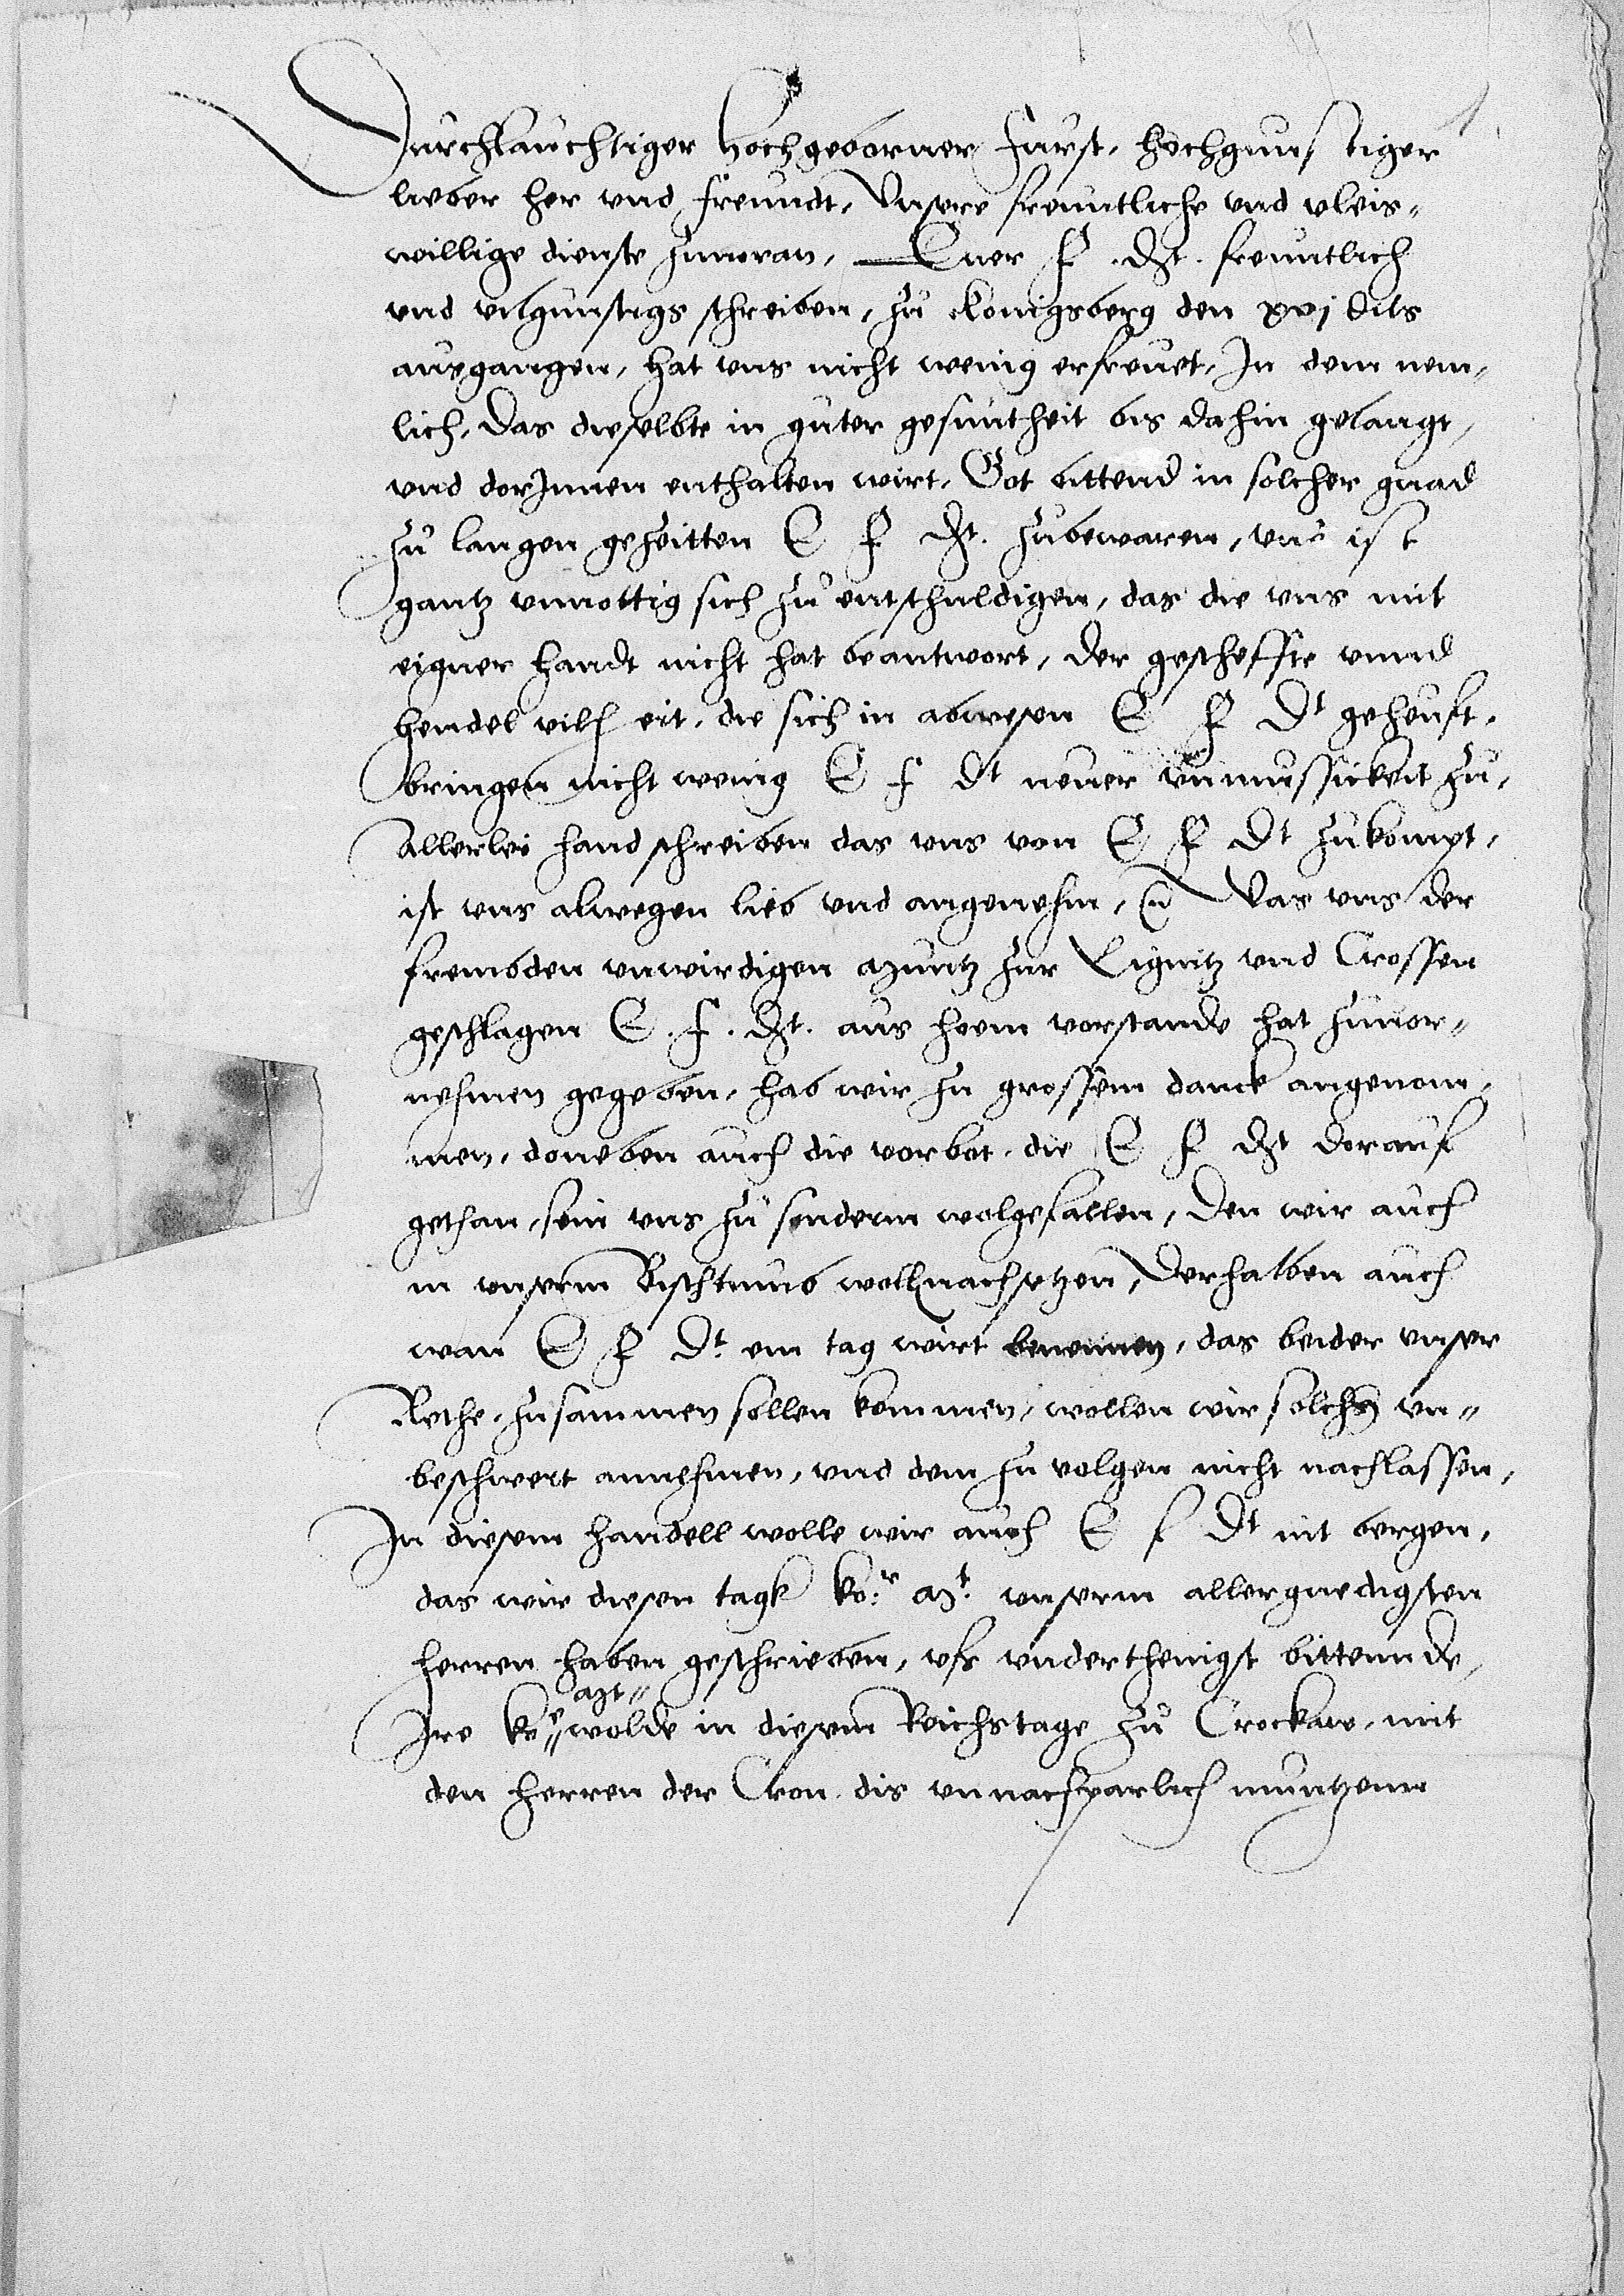 Durchlauchtiger Hochgeborner Furst, hochgunstiger
lieber her vnd freundt, Vnsere freuntliche vnd vleis-
willige dienste zuuoran, Euer F. Dt. freuntlich
vnd vilgunstigs schreiben, zu Konigsberg den xvj dits
ausgangen, hat vns nicht wenig erfreuet, In dem nem-
lich, das dieselbte in guter gesuntheit bis dahin gelangt,
vnd dorInnen enthalten wirt, Got bittend in solcher gnad
zu langen gezeitten E F Dt. zubewaren, vns ist
gantz vnnottig sich zu entschuldigen, das die vns mit
eigner handt nicht hat beantwort, der gescheffte vnnd
hendel vilheit, die sich in abwesen E F Dt geheuft,
bringen nicht wenig E F Dt neuer vnmussickeit zu,
Allerlei handschreiben das vns von E F Dt zukompt,
ist vns alwegen lieb vnd angenehm, Das vns der
frembden vnwirdigen Muntz zur Lignitz vnd Crossen
geschlagen E. F. Dt. aus hoem vorstande hat zuuor-
nehmen gegeben, hab wir zu grossem danck angenom-
men, doneben auch die vorbot, die E F Dt dorauf
gethan, sein vns zu sonderm wolgefallen, Den wir auch
in vnserm Bischtumb woll nachsetzen, Derhalben auch
wan E F Dt. ein tag wirt benennen, das beider vnser
Rethe, zusammen sollen kommen, wollen wir solchs vn-
beschwert annehmen, vnd dem zu volgen nicht nachlassen,
In diesem handell wolle wir auch E F Dt nit bergen,
das wir diesen tagk ko:r Mt. vnserm allergnedigsten
herren haben geschrieben, vfs vnderthenigst bittennde,
Ire ko:e Mt wolde in diesem Reichstage zu Crockaw, mit
den herren der Cron, dis vnnachparlich muntzenn